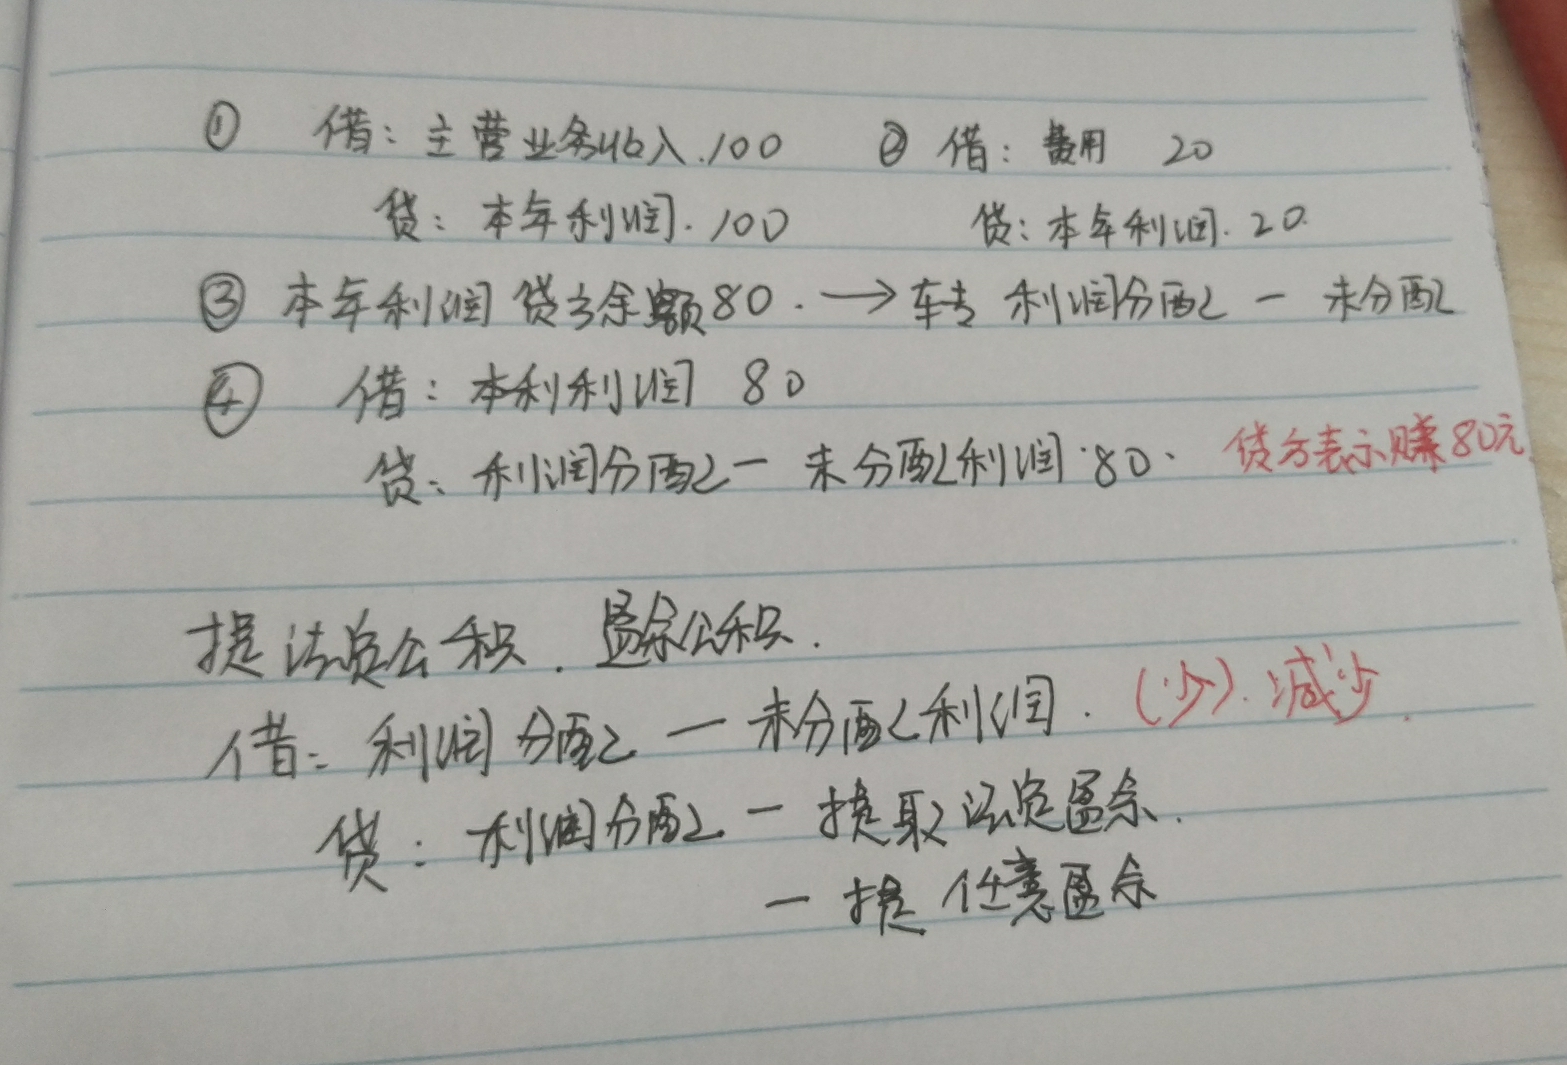 ① 借：主营业务收入.100 ② 借：费用 20
贷：本年利润.100 贷：本年利润.20.
③ 本年利润贷方余额80.→转 利润分配－未分配
④ 借：本利利润 80
贷：利润分配－未分配利润.80. 贷方表示赚80元
提法定公积.盈余公积.
借：利润分配－未分配利润.(少).减少.
贷：利润分配－提取法定盈余.
－提任意盈余